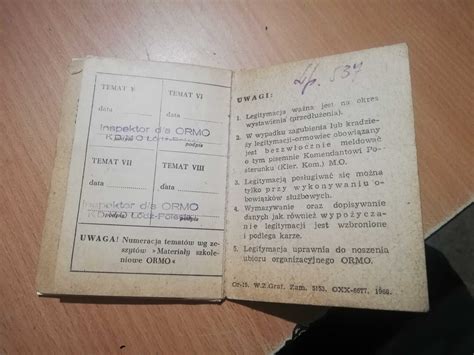 TEMAT V
data
podpis
TEMAT VI
data
podpis
Inspektor dla ORMO
TEMAT VII
data
podpis
TEMAT VIII
data
podpis
Inspektor dla ORMO
UWAGA! Numeracja tematów wg ze-
szytów »Materiały szkole-
niowe ORMO«
Lp. 537
UWAGI:
1. Legitymacja ważna jest na okres
wystawienia (przedłużenia).
2. W wypadku zagubienia lub kradzie-
ży legitymacji-ormowiec obowiązany
jest bezzwłocznie meldować
o tym pisemnie Komendantowi Po-
sterunku (Kier. Kom.) M.O.
3. Legitymacją posługiwać się można
tylko przy wykonywaniu o-
bowiązków służbowych.
4. Wymazywanie oraz dopisywanie
danych jak również wypożycza-
nie legitymacji jest wzbronione
i podlega karze.
5. Legitymacja uprawnia do noszenia
ubioru organizacyjnego ORMO.
W.Z.Graf. Zam. 5153. 1968.